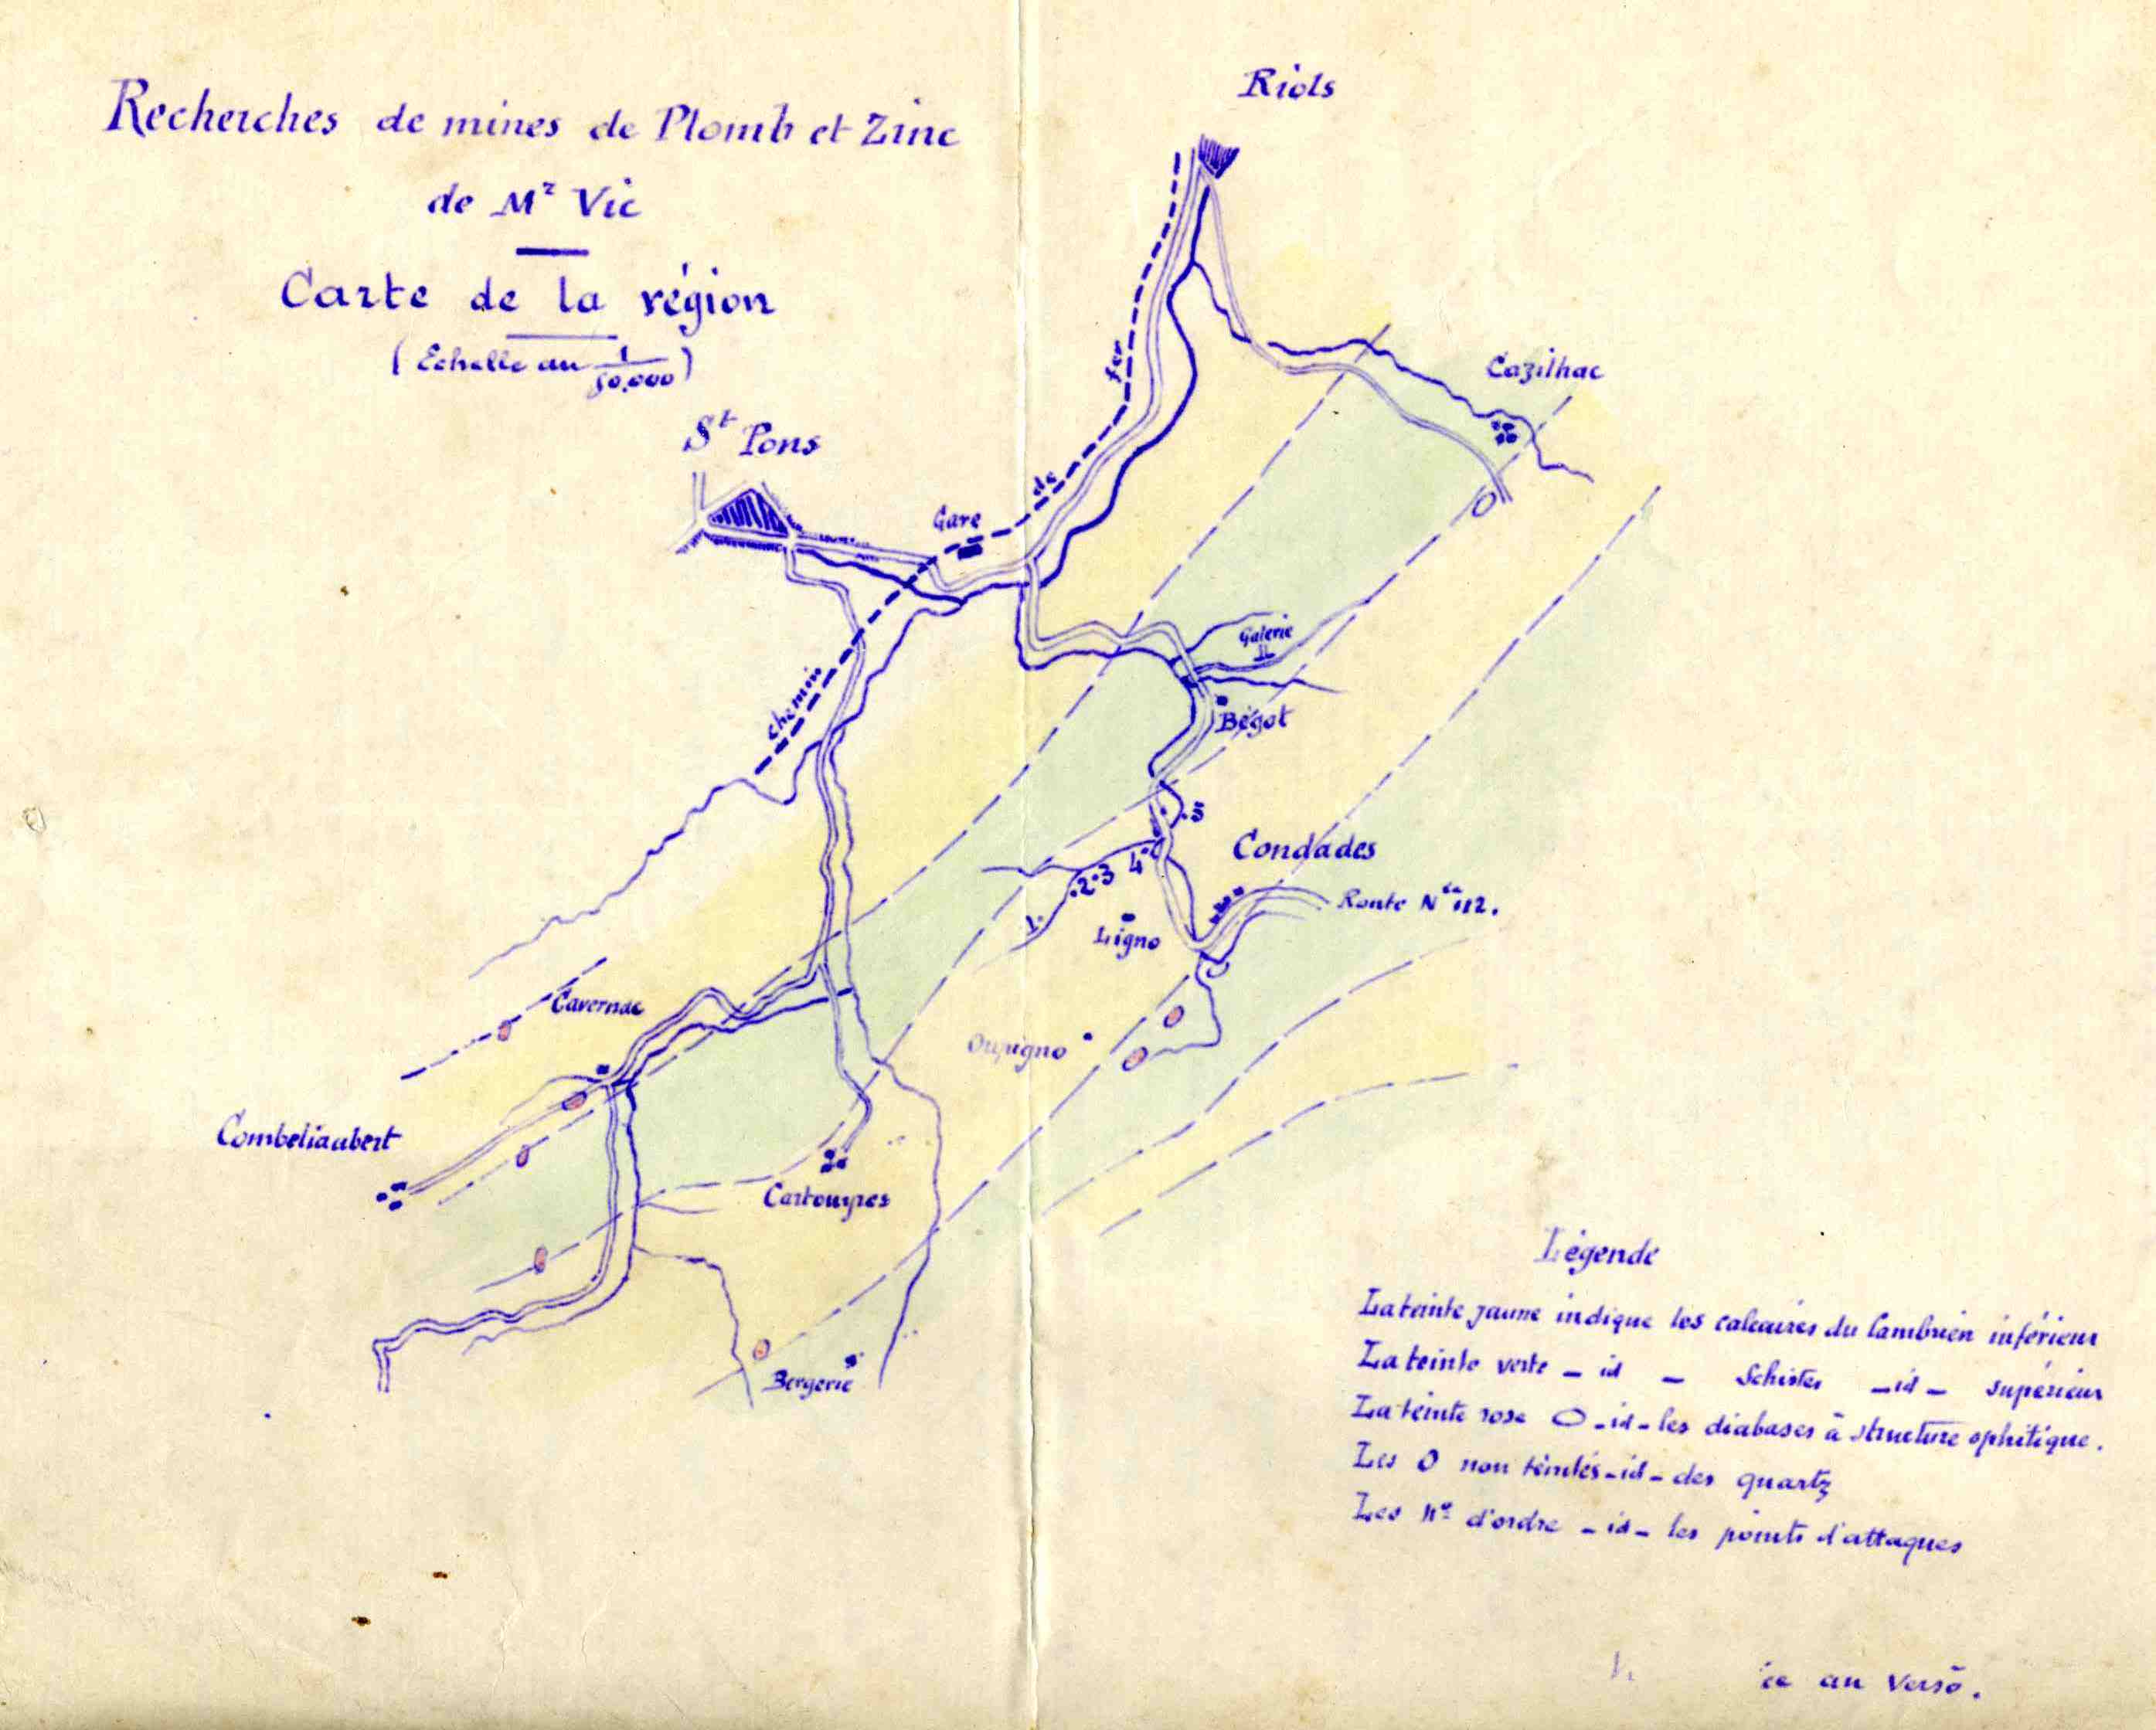 Recherches de mines de Plomb et Zinc
de Mr Vic
Carte de la région
(Echelle au 1/50.000)
Riols
Cazilhac
fer
St Pons
de
Gare
Galerie
chemin
Bégot
5
Condades
4
2 3
Route Nle 112.
1
Ligno
Cavernac
Oupigno
Combeliaubert
Cartouyres
Bergerie
Légende
La teinte jaune indique les calcaires du Cambrien inférieur
La teinte verte - id - Schistes - id - supérieur
La teinte rose O - id - les diabases à structure ophitique.
Les O non teintés - id - des quartz
Les Nos d'ordre - id - les points d'attaques
au verso.